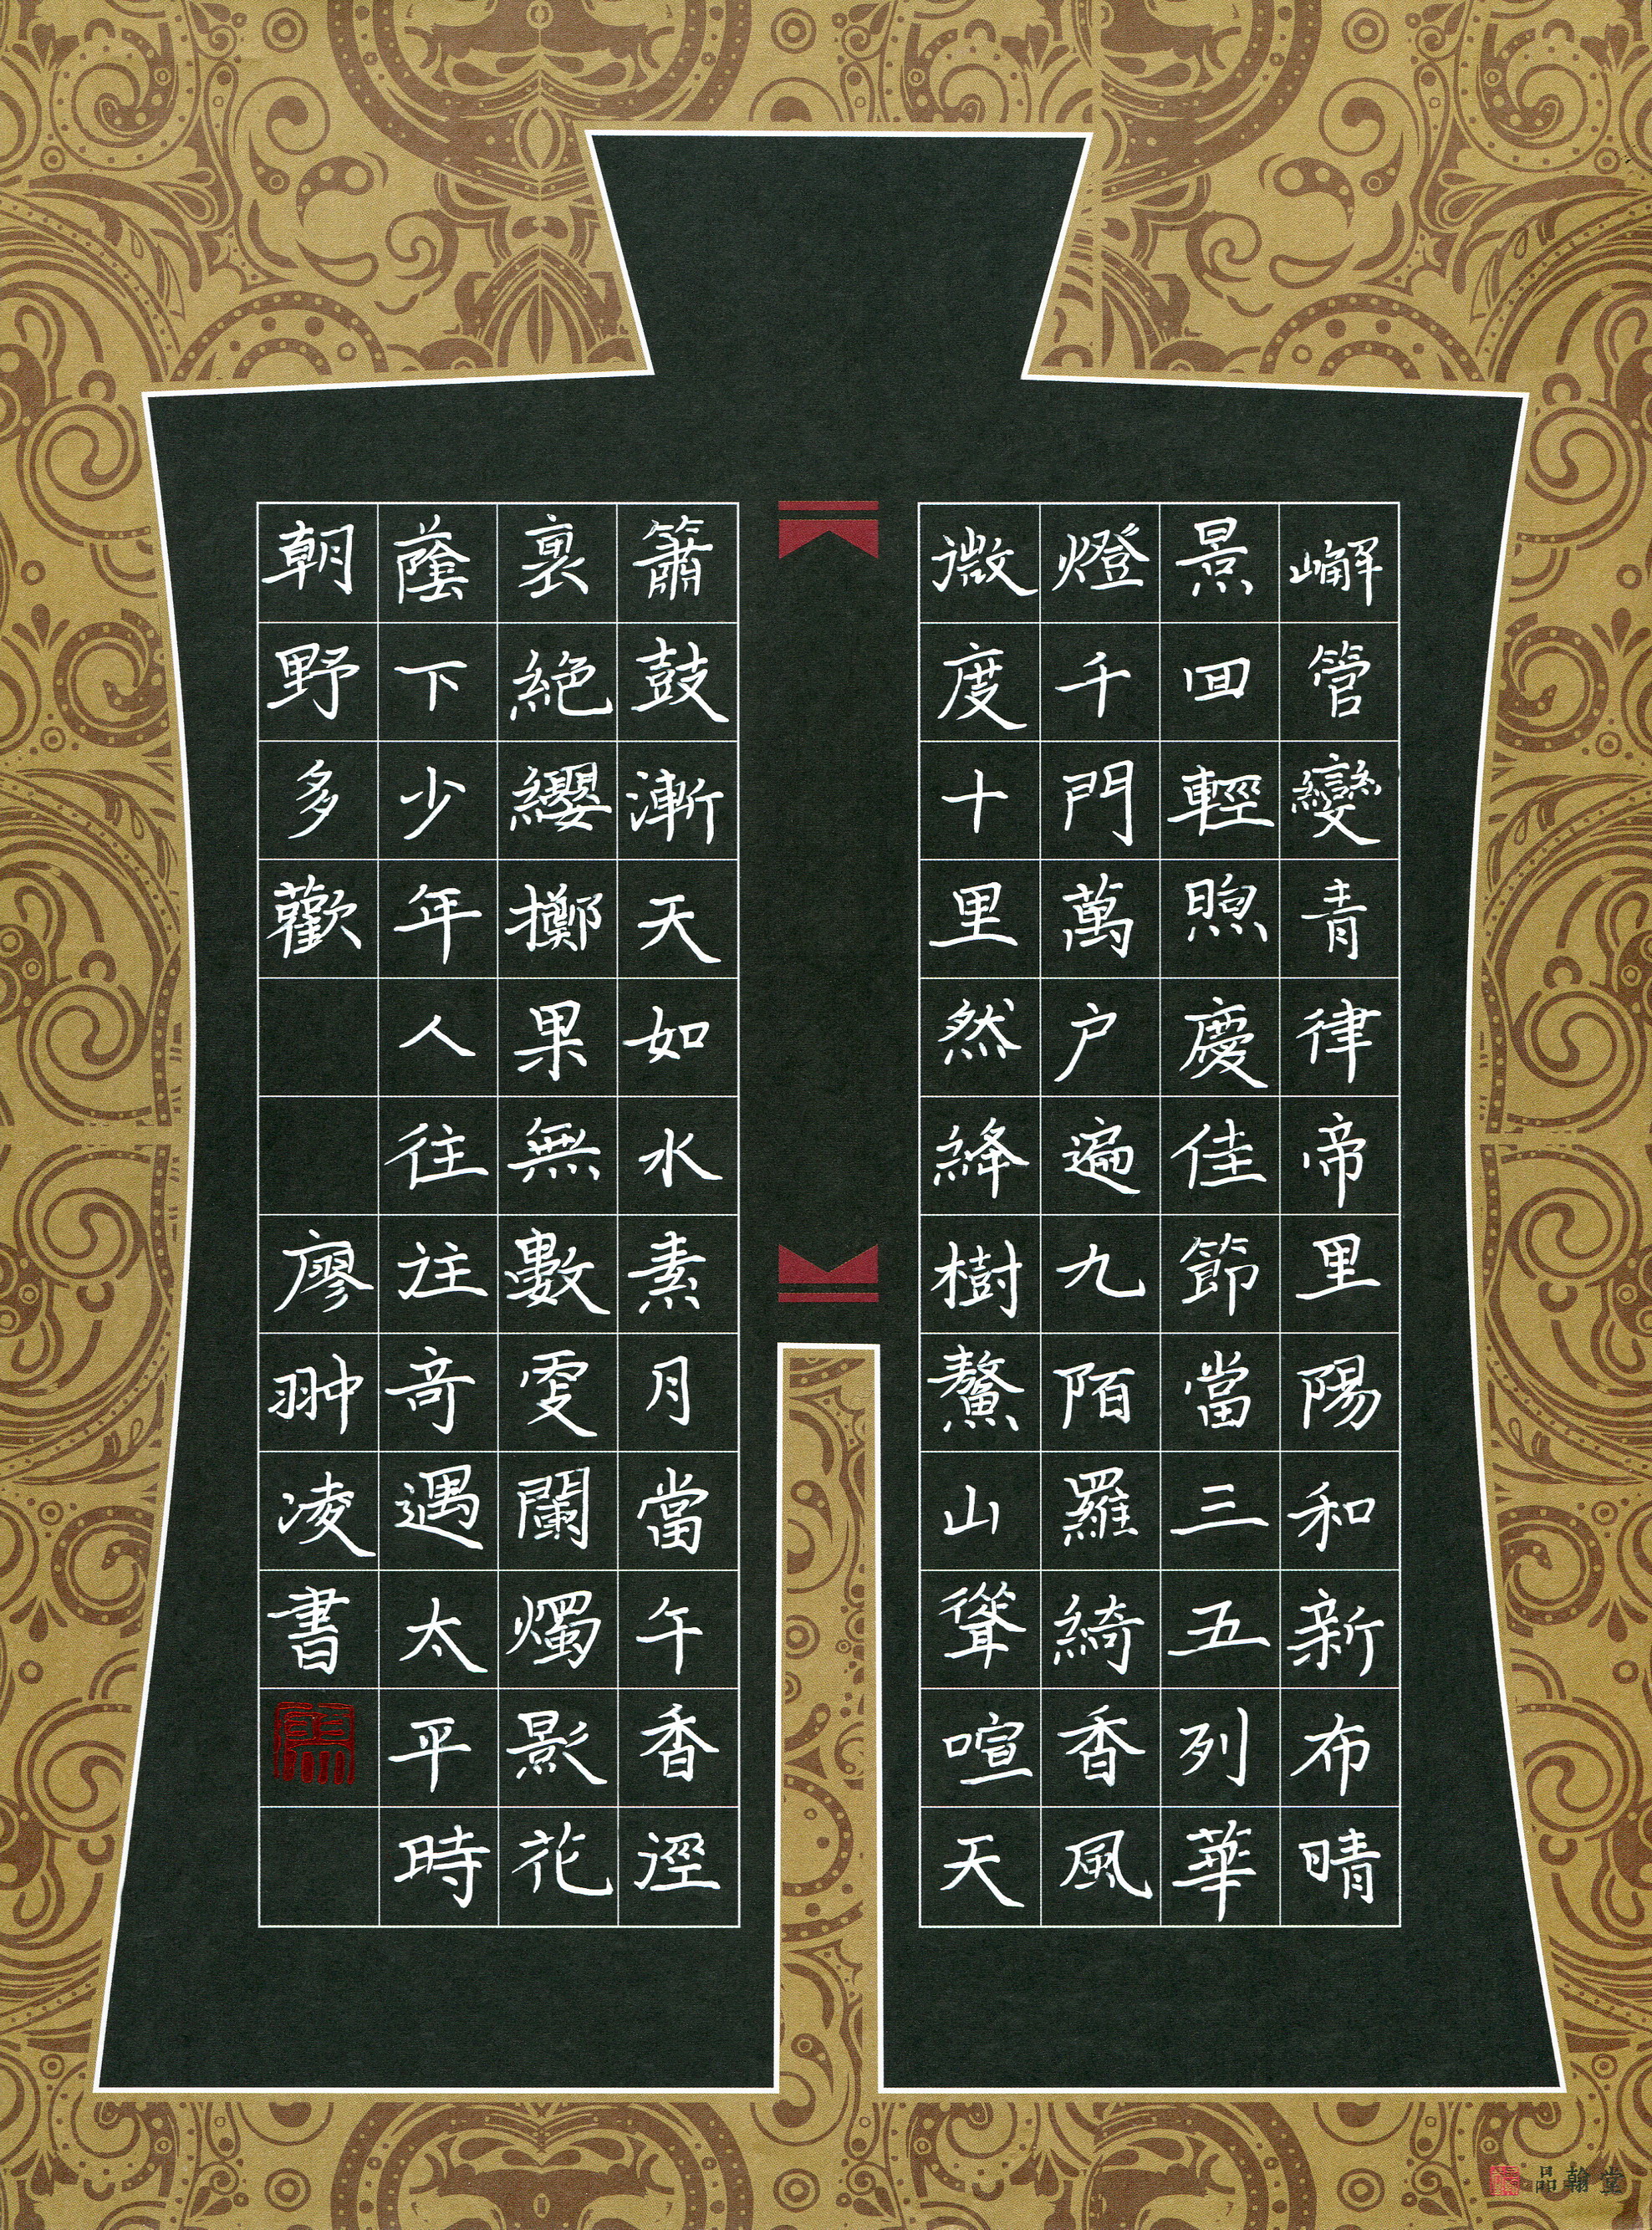 嶰管變青律帝里陽和新布晴
景回輕煦慶佳節當三五列華
燈千門萬户遍九陌羅綺香風
微度十里然絳樹鰲山聳喧天
簫鼓漸天如水素月當午香逕
裏絕纓擲果無數更闌燭影花
蔭下少年人往往奇遇太平時
朝野多歡
廖翀凌書
品翰堂